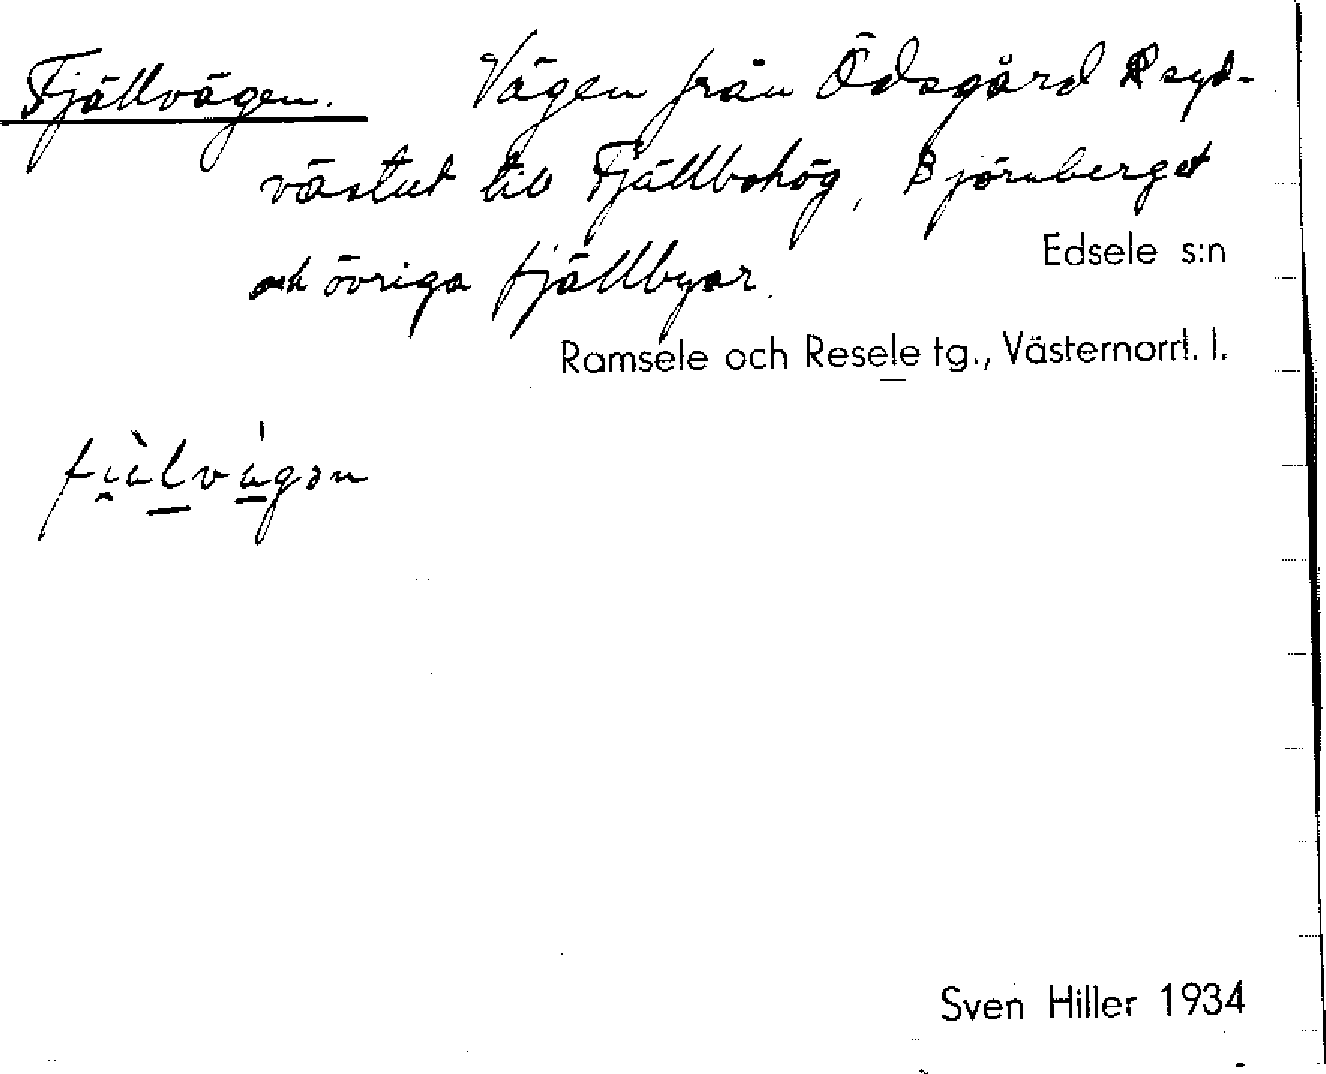 Fjällvägen. Vägen från Ödsgård R syd-
västut till Fjällbohög, Björnberget
och övriga fjällbyar.
Edsele s:n
Ramsele och Resele tg., Västernorrl. l.
Sven Hiller 1934